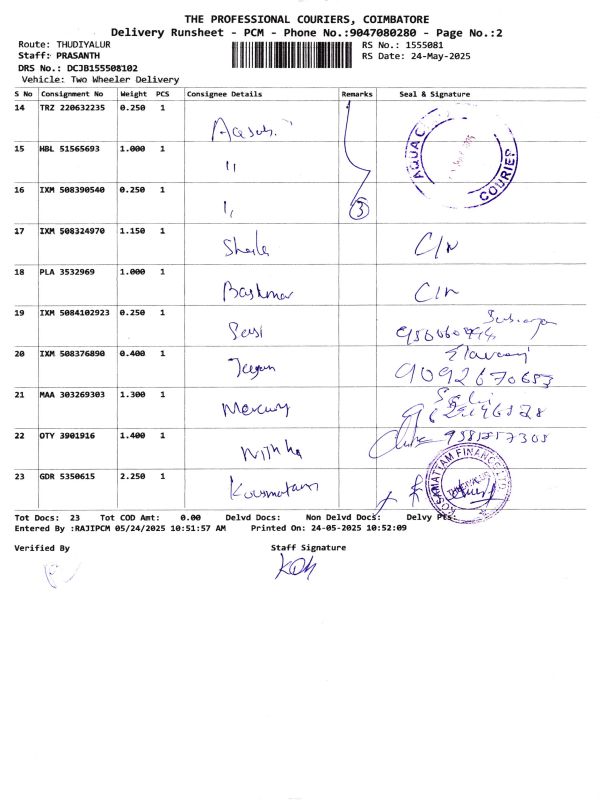 THE PROFESSIONAL COURIERS, COIMBATORE
Delivery Runsheet - PCM - Phone No.:9047080280 - Page No.:2
Route: THUDIYALUR RS No.: 1555081
Staff: PRASANTH RS Date: 24-May-2025
DRS No.: DCJB155508102
Vehicle: Two Wheeler Delivery
S No Consignment No Weight PCS Consignee Details Remarks Seal & Signature
14 TRZ 220632235 0.250 1
AQUA COURIER
15 HBL 51565693 1.000 1 ,,
16 IXM 508390540 0.250 1 ,, 3
17 IXM 508324970 1.150 1 Sheela C/n
18 PLA 3532969 1.000 1 Baskmar C/n
19 IXM 5084102923 0.250 1 Sasi
20 IXM 508376890 0.400 1 Jeegan 9092670653
21 MAA 303269303 1.300 1 Mercury
22 OTY 3901916 1.400 1 Nithka
23 GDR 5350615 2.250 1 Kosamatam
KOSAMATTAM FINANCE LTD
Tot Docs: 23 Tot COD Amt: 0.00 Delvd Docs: Non Delvd Docs: Delvy Pts:
Entered By :RAJIPCM 05/24/2025 10:51:57 AM Printed On: 24-05-2025 10:52:09
Verified By Staff Signature